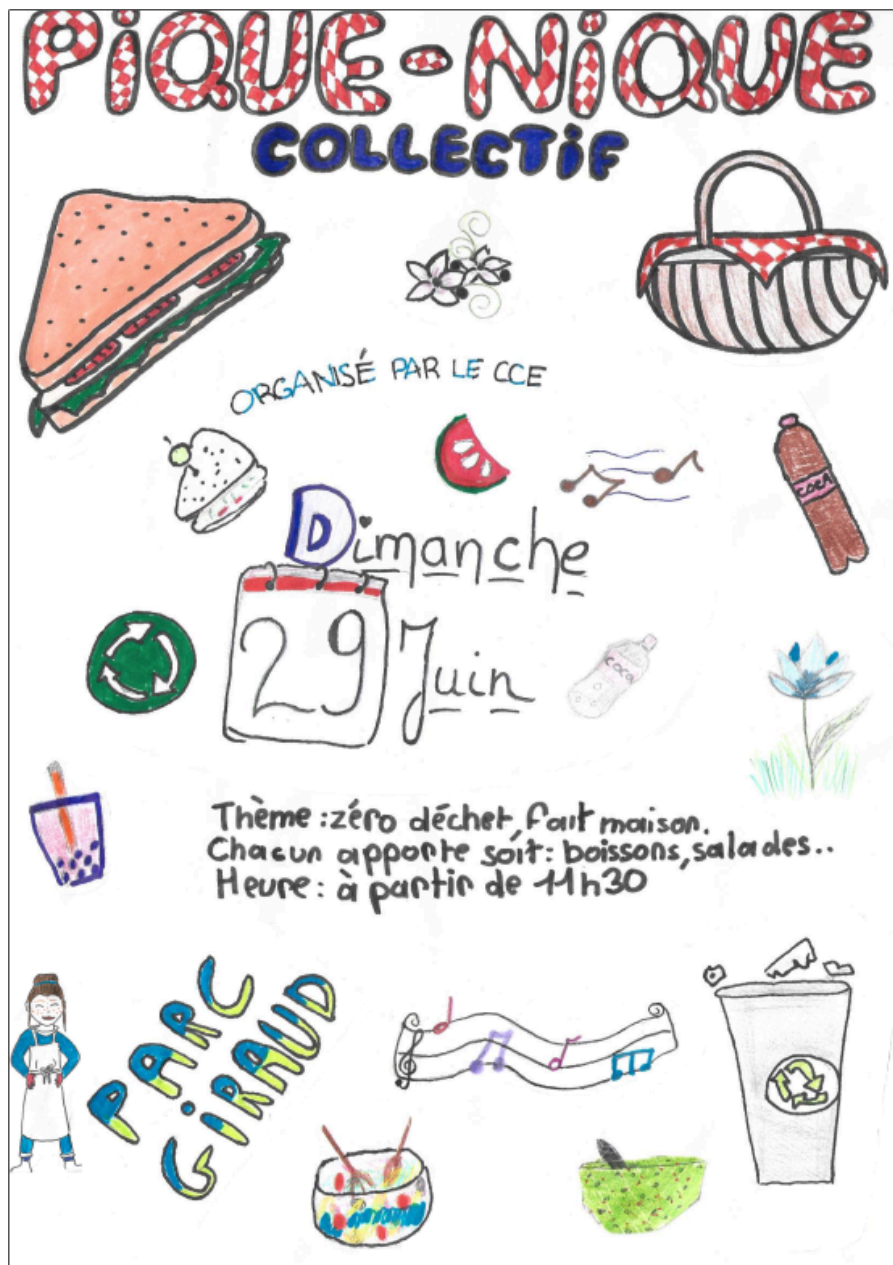 PiQUE-NiQUE
COLLECTiF
ORGANISÉ PAR LE CCE
COCA
Dimanche
29 Juin
COCA
Thème : zéro déchet, fait maison.
Chacun apporte soit : boissons, salades..
Heure : à partir de 11h30
PARC
GiRAUD